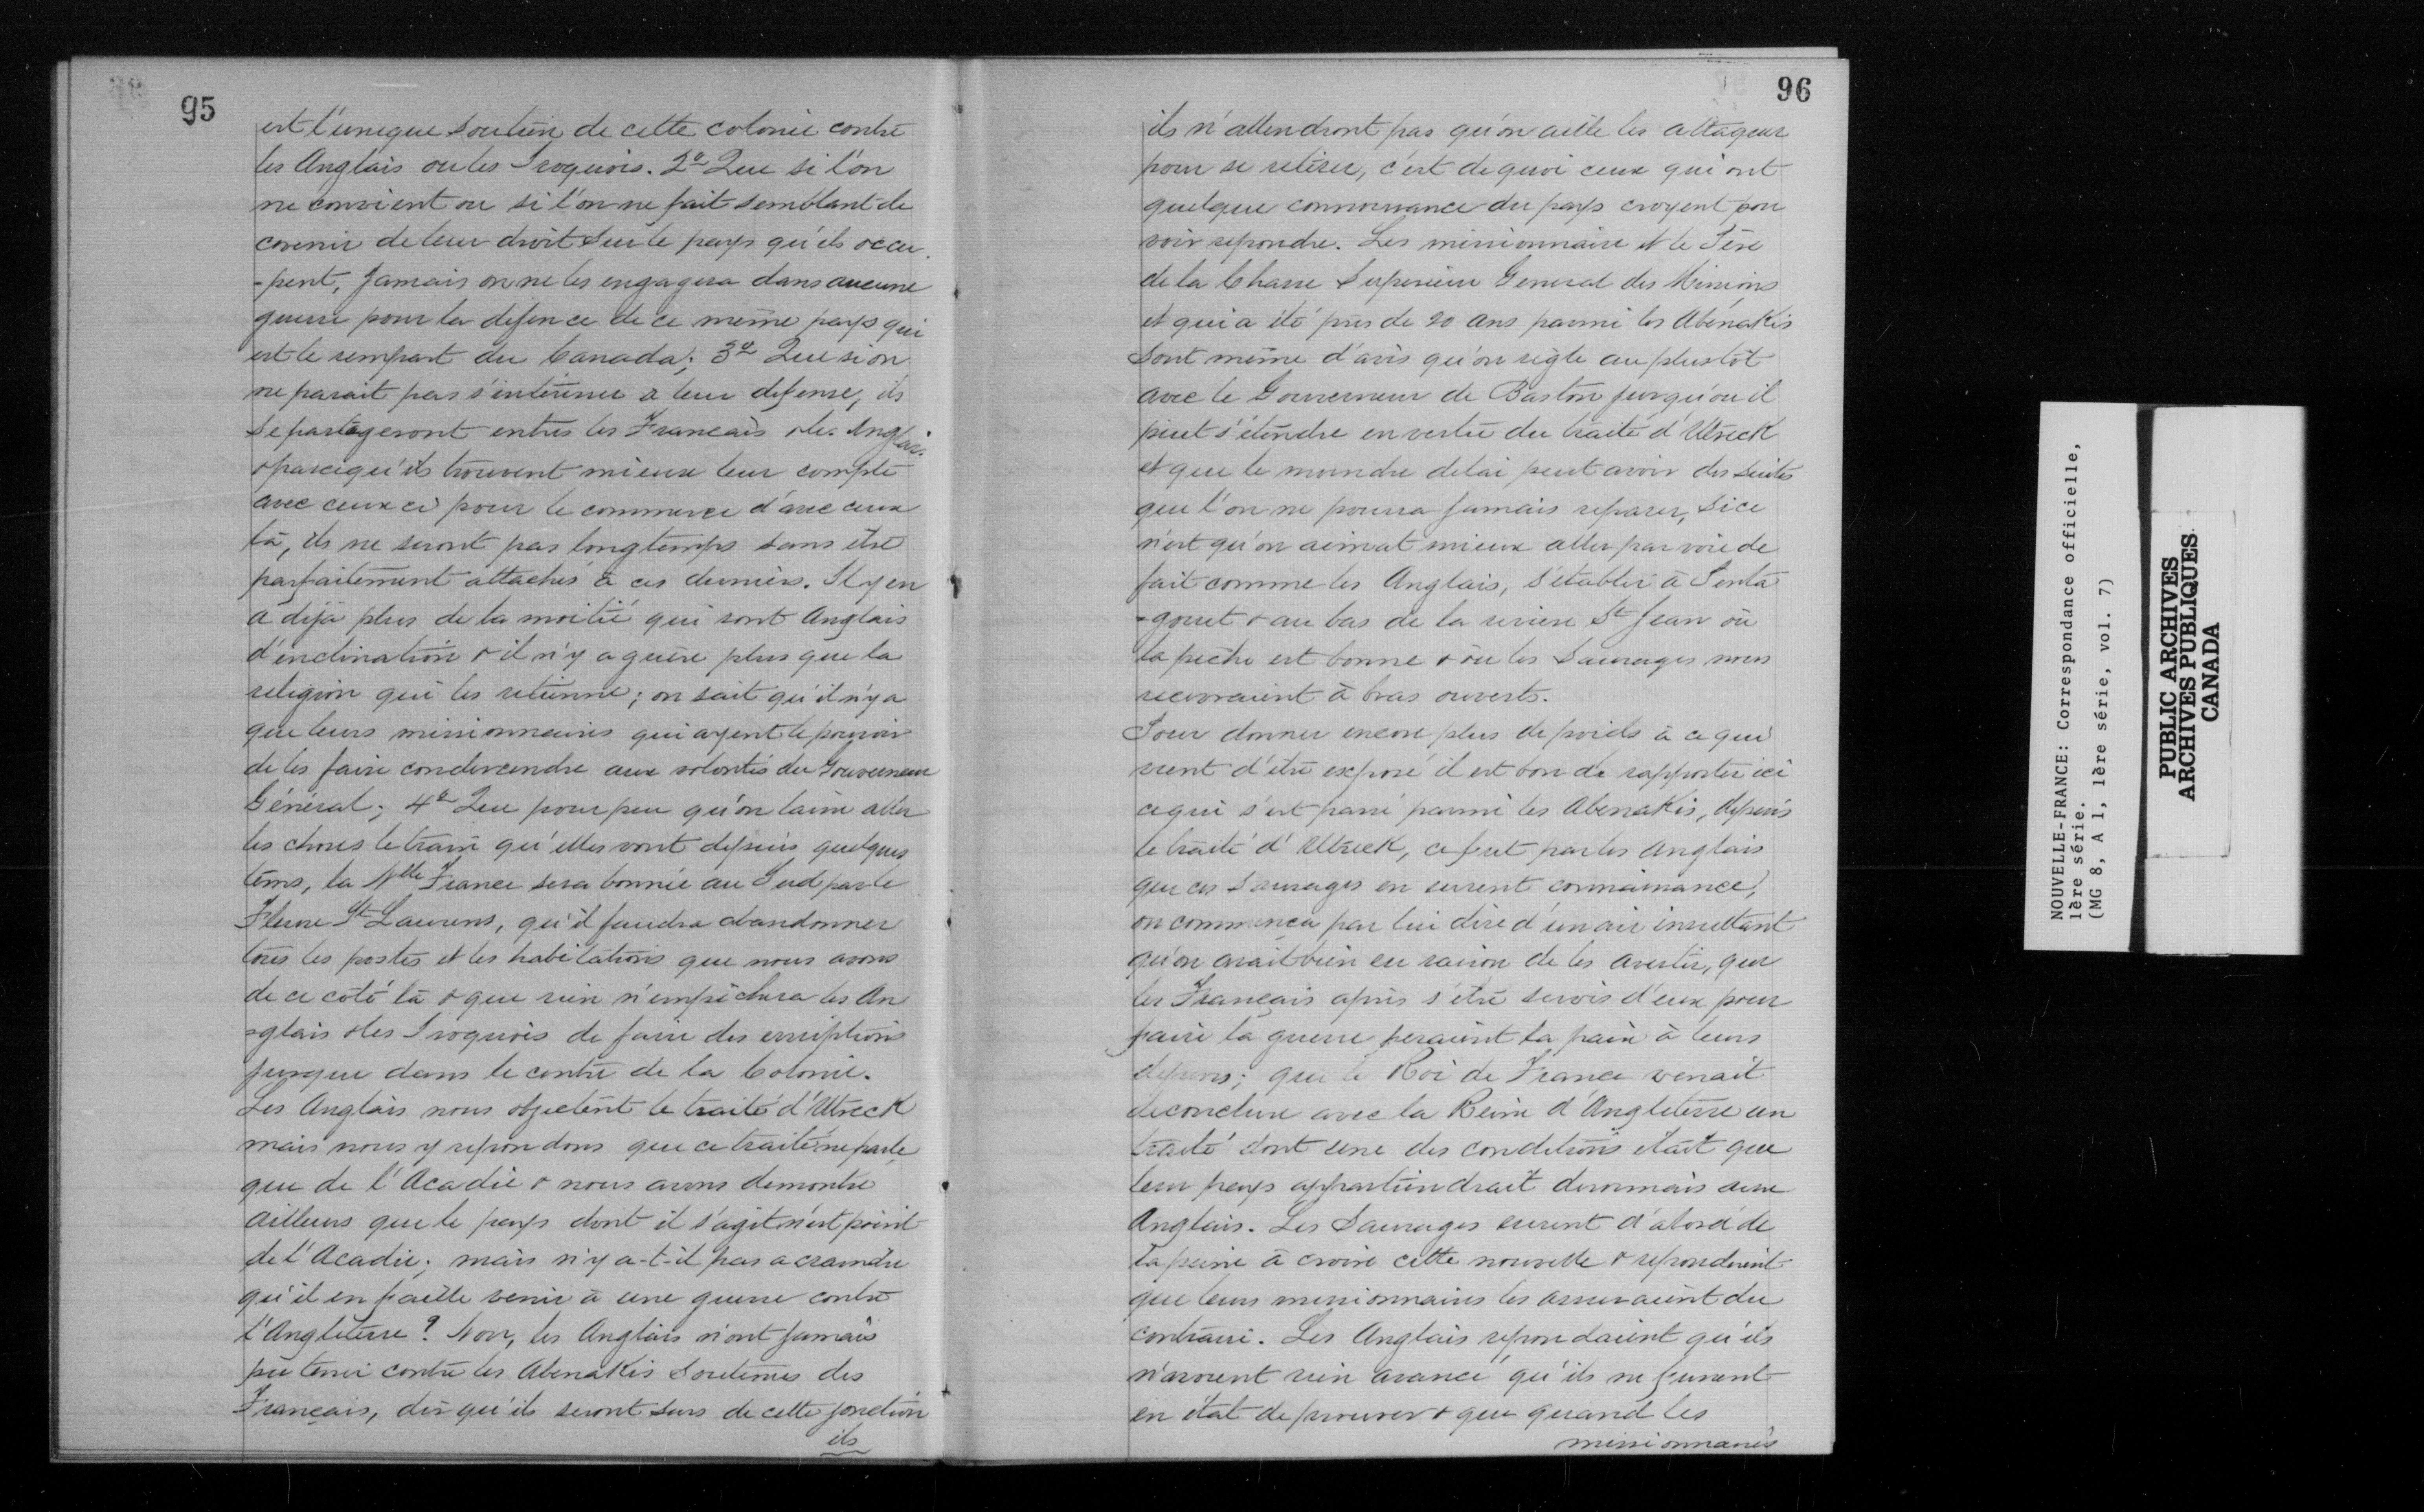 95
est l'unique soutien de cette colonie contre
les Anglais ou les Iroquois. 2o Que si l'on
ne convient ou si l'on ne fait semblant de
covenir de leur droit sur le pays qu'ils occu
-pent, jamais on ne les engagera dans aucune
guerre pour la défence de ce même pays qui
est le rempart du Canada; 3o Que si on
ne parait pas s'intéresser à leur défense, ils
se partageront entres les Francais & les Anglais.
& parcequ'ils trouvent mieux leur compte
avec ceux ci pour le commerce d'avec ceux
là, ils ne seront pas longtemps sans être
parfaitement attachés à ces derniers. Il y en
a déjà plus de la moitié qui sont Anglais
d'inclination & il n'y a guère plus que la
religion qui les retienne; on sait qu'il n'y a
que leurs missionnaires qui ayent le pouvoir
de les faire condescendre aux volontés du Gouverneur
Général; 4o Que pour peu qu'on laisse aller
les choses le train qu'elles vont depuis quelques
tems, la Nlle France sera bornée au Sud par le
Fleuve St Laurens, qu'il faudra abandonner
tous les postes et les habitations que nous avons
de ce côté là & que rien n'empêchera les An
=glais & les Iroquois de faire des erruptions
jusque dans le centre de la Colonie.
Les Anglais nous objectent le traité d'Utreck
mais nous y repondons que ce traité ne parle
que de l'Acadie & nous avons demontré
ailleurs que le pays dont il s'agit n'est point
de l'Acadie; mais n'y a-t-il pas a craindre
qu'il en faille venir à une guerre contre
l'Angleterre? Non, les Anglais n'ont jamais
pu tenir contre les Abenakis soutenus des
Français, dès qu'ils seront surs de cette jonction
ils
96
ils n'attendront pas qu'on aille les attaquer
pour se retirer, c'est de quoi ceux qui ont
quelque connoissance du pays croyent pou
voir repondre. Les missionnaire et le Père
de la Chasse Superieur General des Missions
et qui a été près de 20 ans parmi les Abénakis
sont même d'avis qu'on règle au plustôt
avec le Gouverneur de Baston jusqu'ou il
peut s'étendre en vertu du traité d'Utreck
et que le moindre delai peut avoir des suites
que l'on ne pourra jamais reparer, si ce
n'est qu'on aimat mieux aller par voie de
fait comme les Anglais, s'établir à Penta
=gouet & au bas de la rivière St Jean où
la pêche est bonne & où les Sauvages nous
recevraient à bras ouverts.
Pour donner encore plus de poids à ce qui
vient d'être exposé il est bon de rapporter ici
ce qui s'est passé parmi les Abenakis, depuis
le traité d'Utreck, ce fut par les Anglais
que ces Sauvages en eurent connaissance,
on commença par lui dire d'un air insultant
qu'on avait bien eu raison de les avertir, que
les Français après s'être servis d'eux pour
faire la guerre feraient la paix à leurs
depens; que le Roi de France venait
de conclure avec la Reine d'Angleterre un
traité dont une des conditions était que
leur pays appartiendrait desormais aux
Anglais. Les Sauvages eurent d'abord de
la peine à croire cette nouvelle & repondirent
que leurs missionnaires les assuraient du
contraire. Les Anglais repondaient qu'ils
n'avoient rien avancé qu'ils ne fussent
en état de prouver & que quand les
missionnaires
NOUVELLE-FRANCE: Correspondance officielle,
1ère série.
(MG 8, A 1, 1ère série, vol. 7)
PUBLIC ARCHIVES
ARCHIVES PUBLIQUES
CANADA